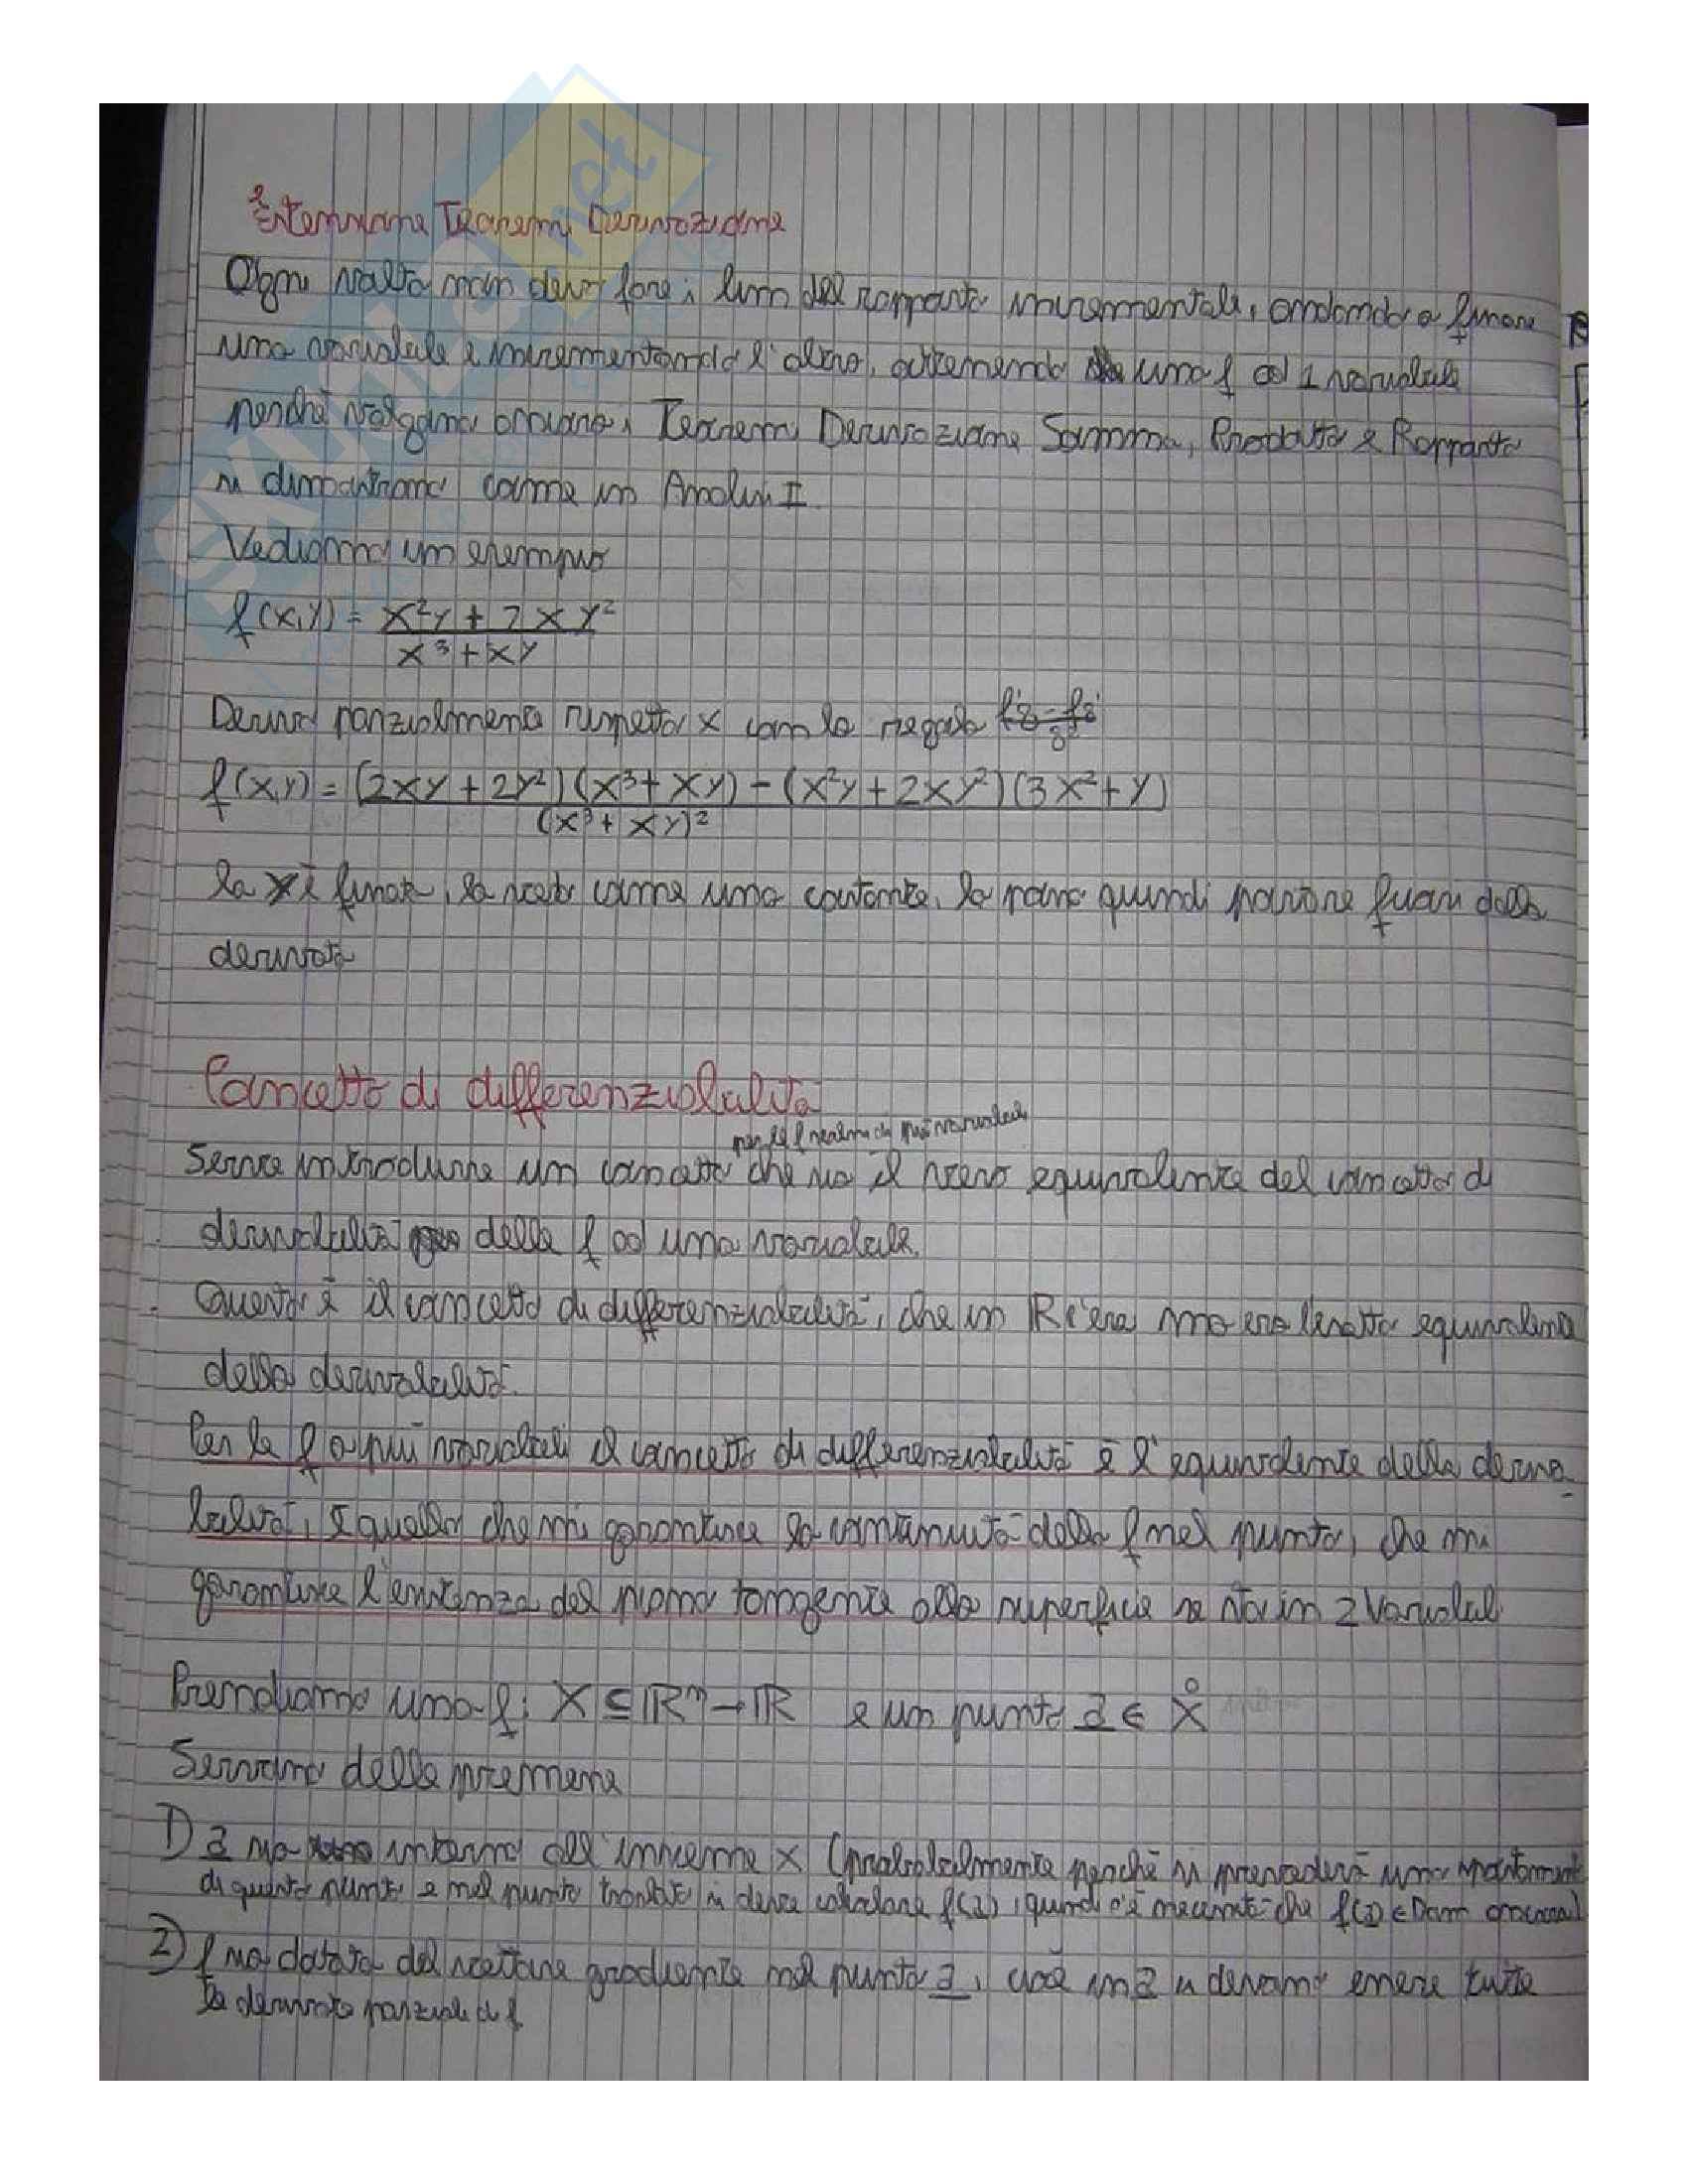 Estensione Teoremi Derivazione
Ogni volta non devo fare i lim del rapporto incrementale, andando a fissare
una variabile e incrementando l'altra, ottenendo una f ad 1 variabile
perchè valgano ancora i Teoremi Derivazione Somma, Prodotto e Rapporto
si dimostrano come in Analisi I.
Vediamo un esempio
f(x,y) = x²y + 2xy² / x³ + xy
Derivo parzialmente rispetto x con la regola f'g - fg' / g²
f(x,y) = (2xy + 2y²)(x³ + xy) - (x²y + 2xy²)(3x² + y) / (x³ + xy)²
la y è fissata, la vedo come una costante, la posso quindi portare fuori dalla
derivata
Concetto di differenziabilità
per le f reali di più variabili
Serve introdurre un concetto che sia il vero equivalente del concetto di
derivabilità delle f ad una variabile.
Questo è il concetto di differenziabilità, che in R c'era ma era l'esatto equivalente
della derivabilità.
Per le f a più variabili il concetto di differenziabilità è l'equivalente della deriva-
bilità, è quello che mi garantisce la continuità della f nel punto, che mi
garantisce l'esistenza del piano tangente alla superficie se sto in 2 variabili
Prendiamo una f: X ⊆ ℝⁿ → ℝ e un punto a ∈ X̊
Servono delle premesse
1) a sia interno all'insieme X (probabilmente perchè si prevederà uno spostamento
di questo punto e nel punto traslato si deve calcolare f(a), quindi c'è necessità che f(a) ∈ Dom
2) f sia dotata del vettore gradiente nel punto a, cioè in a ci devono essere tutte
le derivate parziali di f